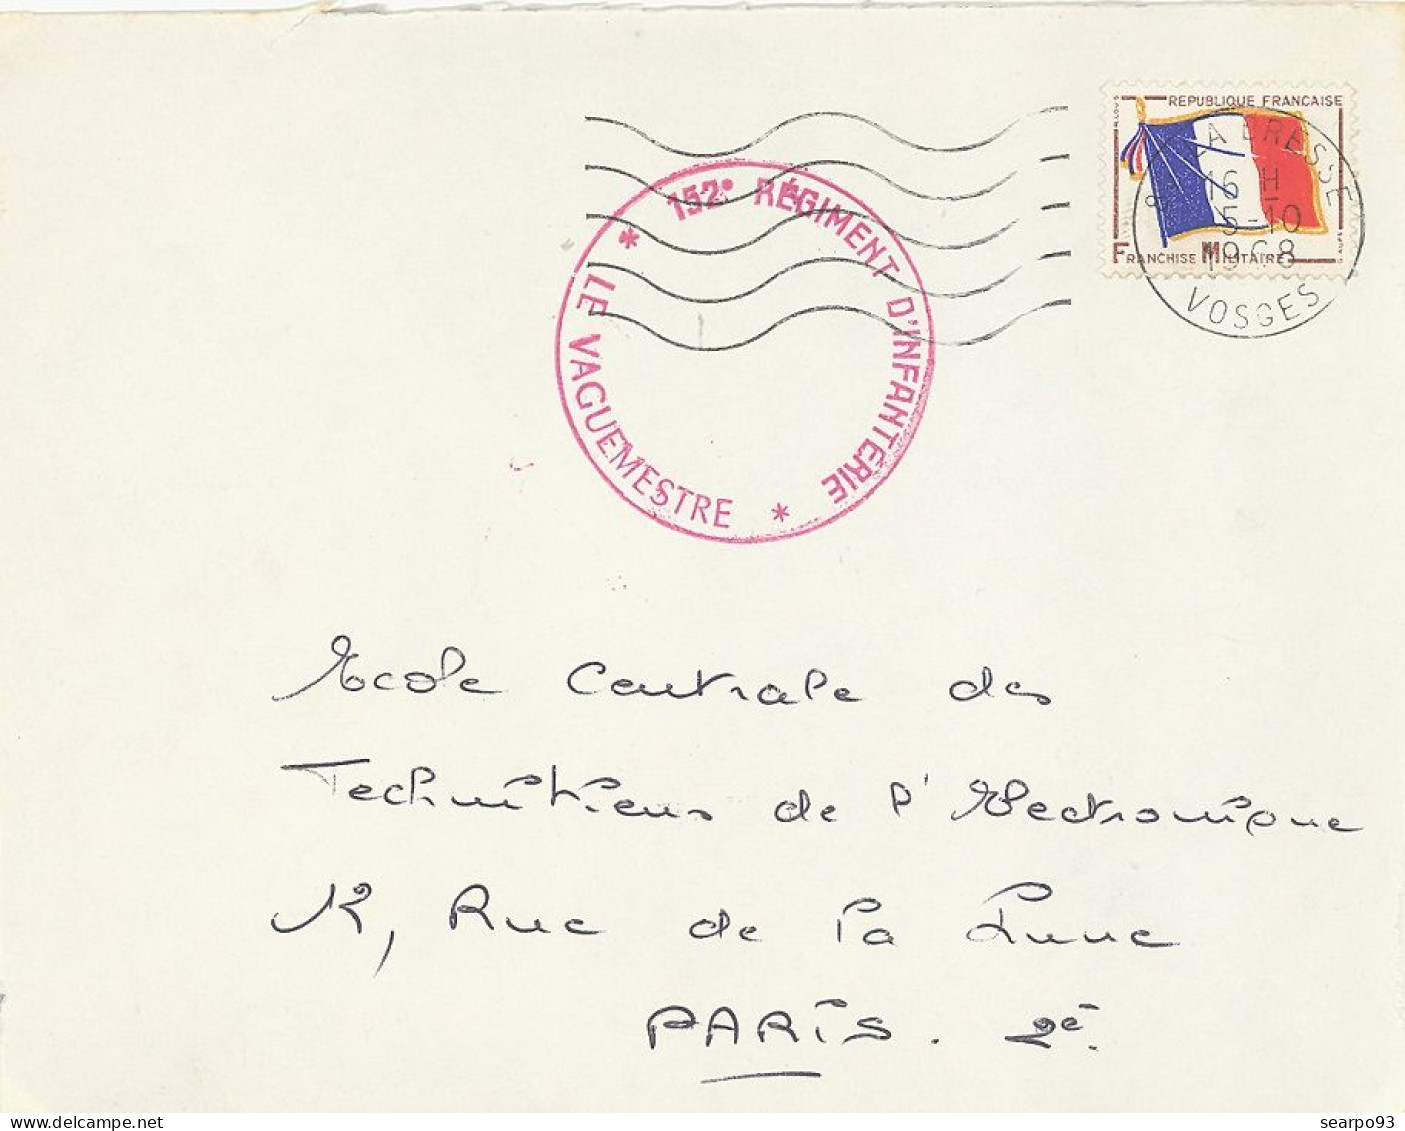 REPUBLIQUE FRANCAISE
FRANCHISE MILITAIRE
LA BRESSE
16 H
5-10
1968
VOSGES
* 152e RÉGIMENT D'INFANTERIE *
LE VAGUEMESTRE
Ecole Centrale des
Techniciens de l'Electronique
12, Rue de la Lune
PARIS. 2è.
delcampe.net
searpo93